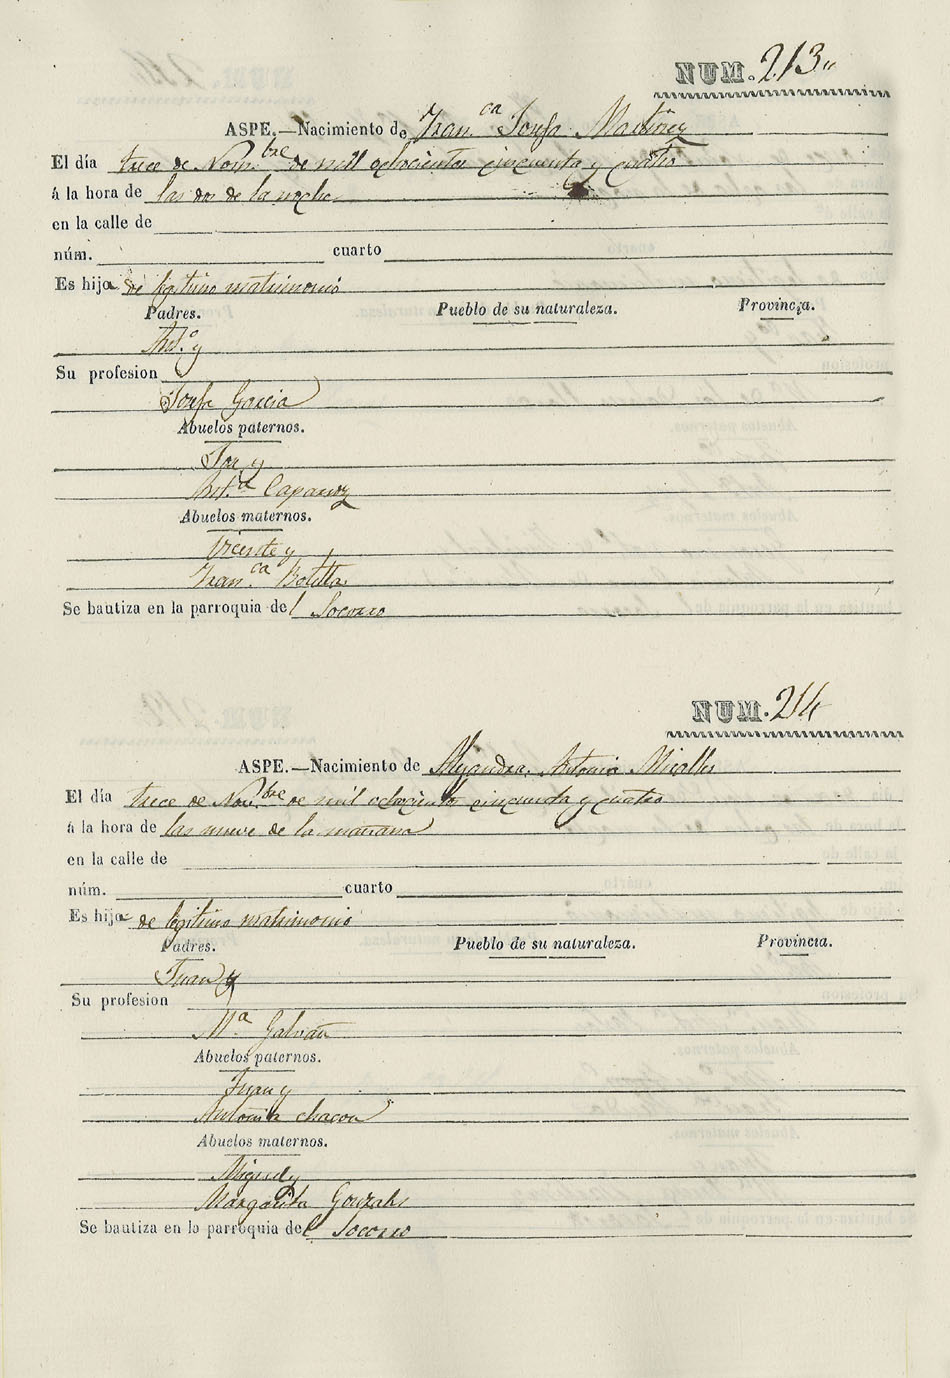 NUM. 213.,
ASPE.—Nacimiento de Fran.ca Josefa Martinez
El día trece de Novm.bre de mil ochocientos cincuenta y cuatro
á la hora de las dos de la noche
en la calle de
núm. cuarto
Es hija de legitimo matrimonio
Padres. Pueblo de su naturaleza. Provincia.
Ant.o y
Su profesion
Josefa Garcia
Abuelos paternos.
José y
Ant.a Caparroz
Abuelos maternos.
Vicente y
Fran.ca Botella
Se bautiza en la parroquia del Socorro
NUM. 214
ASPE.—Nacimiento de Alejandra Antonia Miralles
El día trece de Nov.bre de mil ochocientos cincuenta y cuatro
á la hora de las nueve de la mañana
en la calle de
núm. cuarto
Es hija de legitimo matrimonio
Padres. Pueblo de su naturaleza. Provincia.
Juan y
Su profesion
M.a Galvañ
Abuelos paternos.
Juan y
Antonia chacon
Abuelos maternos.
Miguel y
Margarita Gonzales
Se bautiza en la parroquia del Socorro